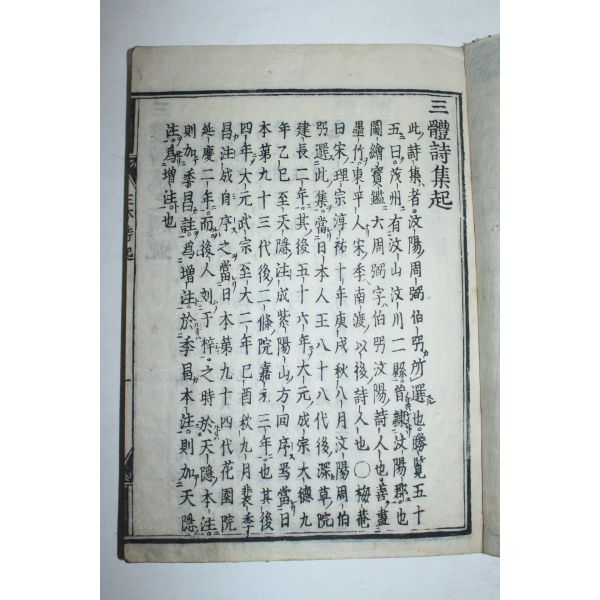 三體詩集起
此詩集者汶陽周弼伯弜所選也勝覽五十
五曰茂州有汶山汶川二縣曾隷汶陽郡也
圖繪寶鑑六周弼字伯弜汶陽詩人也善畫
墨竹東平人宋季南渡以後詩人也〇梅菴
曰宋理宗淳祐十年庚戌秋八月汶陽周伯
弜選此集當日本人王八十八代後深草院
建長二年其後五十六年大元成宗大德九
年乙巳至天隱注成紫陽山方回序焉當日
本第九十三代後二條院嘉元三年也其後
四年大元武宗至大二年巳酉秋九月裴季
昌注成自序之當日本第九十四代花園院
延慶二年而後人刻于梓之時於天隱本注
則加季昌註爲增注於季昌本注則加天隱
注爲增注也